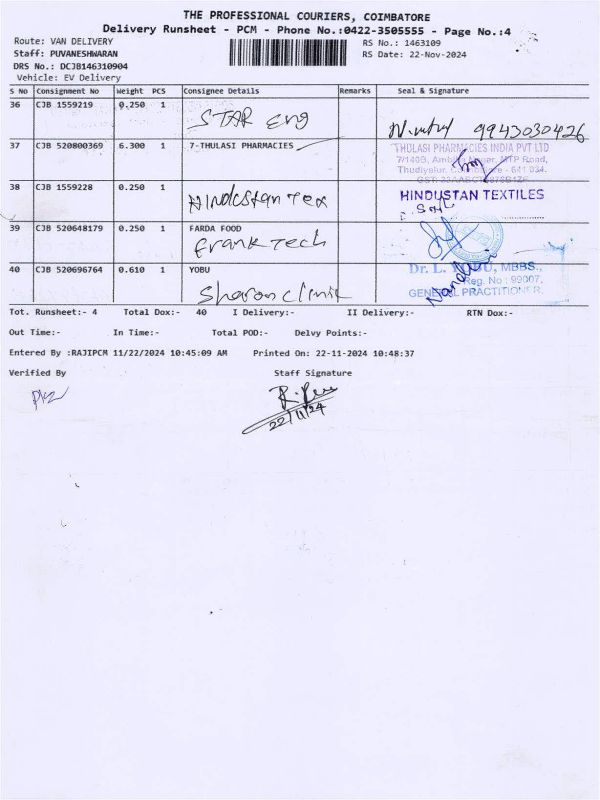 THE PROFESSIONAL COURIERS, COIMBATORE
Delivery Runsheet - PCM - Phone No.:0422-3505555 - Page No.:4
Route: VAN DELIVERY
Staff: PUVANESHWARAN
DRS No.: DCJB146310904
Vehicle: EV Delivery
RS No.: 1463109
RS Date: 22-Nov-2024
S No Consignment No Weight PCS Consignee Details Remarks Seal & Signature
36 CJB 1559219 0.250 1 STAR Eng 9943030426
37 CJB 520800369 6.300 1 7-THULASI PHARMACIES
THULASI PHARMACIES INDIA PVT LTD
38 CJB 1559228 0.250 1 Hindustan Tex HINDUSTAN TEXTILES
39 CJB 520648179 0.250 1 FARDA FOOD
Frank Tech
40 CJB 520696764 0.610 1 YOBU
Sharon Clinik
MBBS.,
Reg. No : 99007,
GENERAL PRACTITIONER.
Tot. Runsheet:- 4 Total Dox:- 40 I Delivery:- II Delivery:- RTN Dox:-
Out Time:- In Time:- Total POD:- Delvy Points:-
Entered By :RAJIPCM 11/22/2024 10:45:09 AM Printed On: 22-11-2024 10:48:37
Verified By Staff Signature
22/11/24